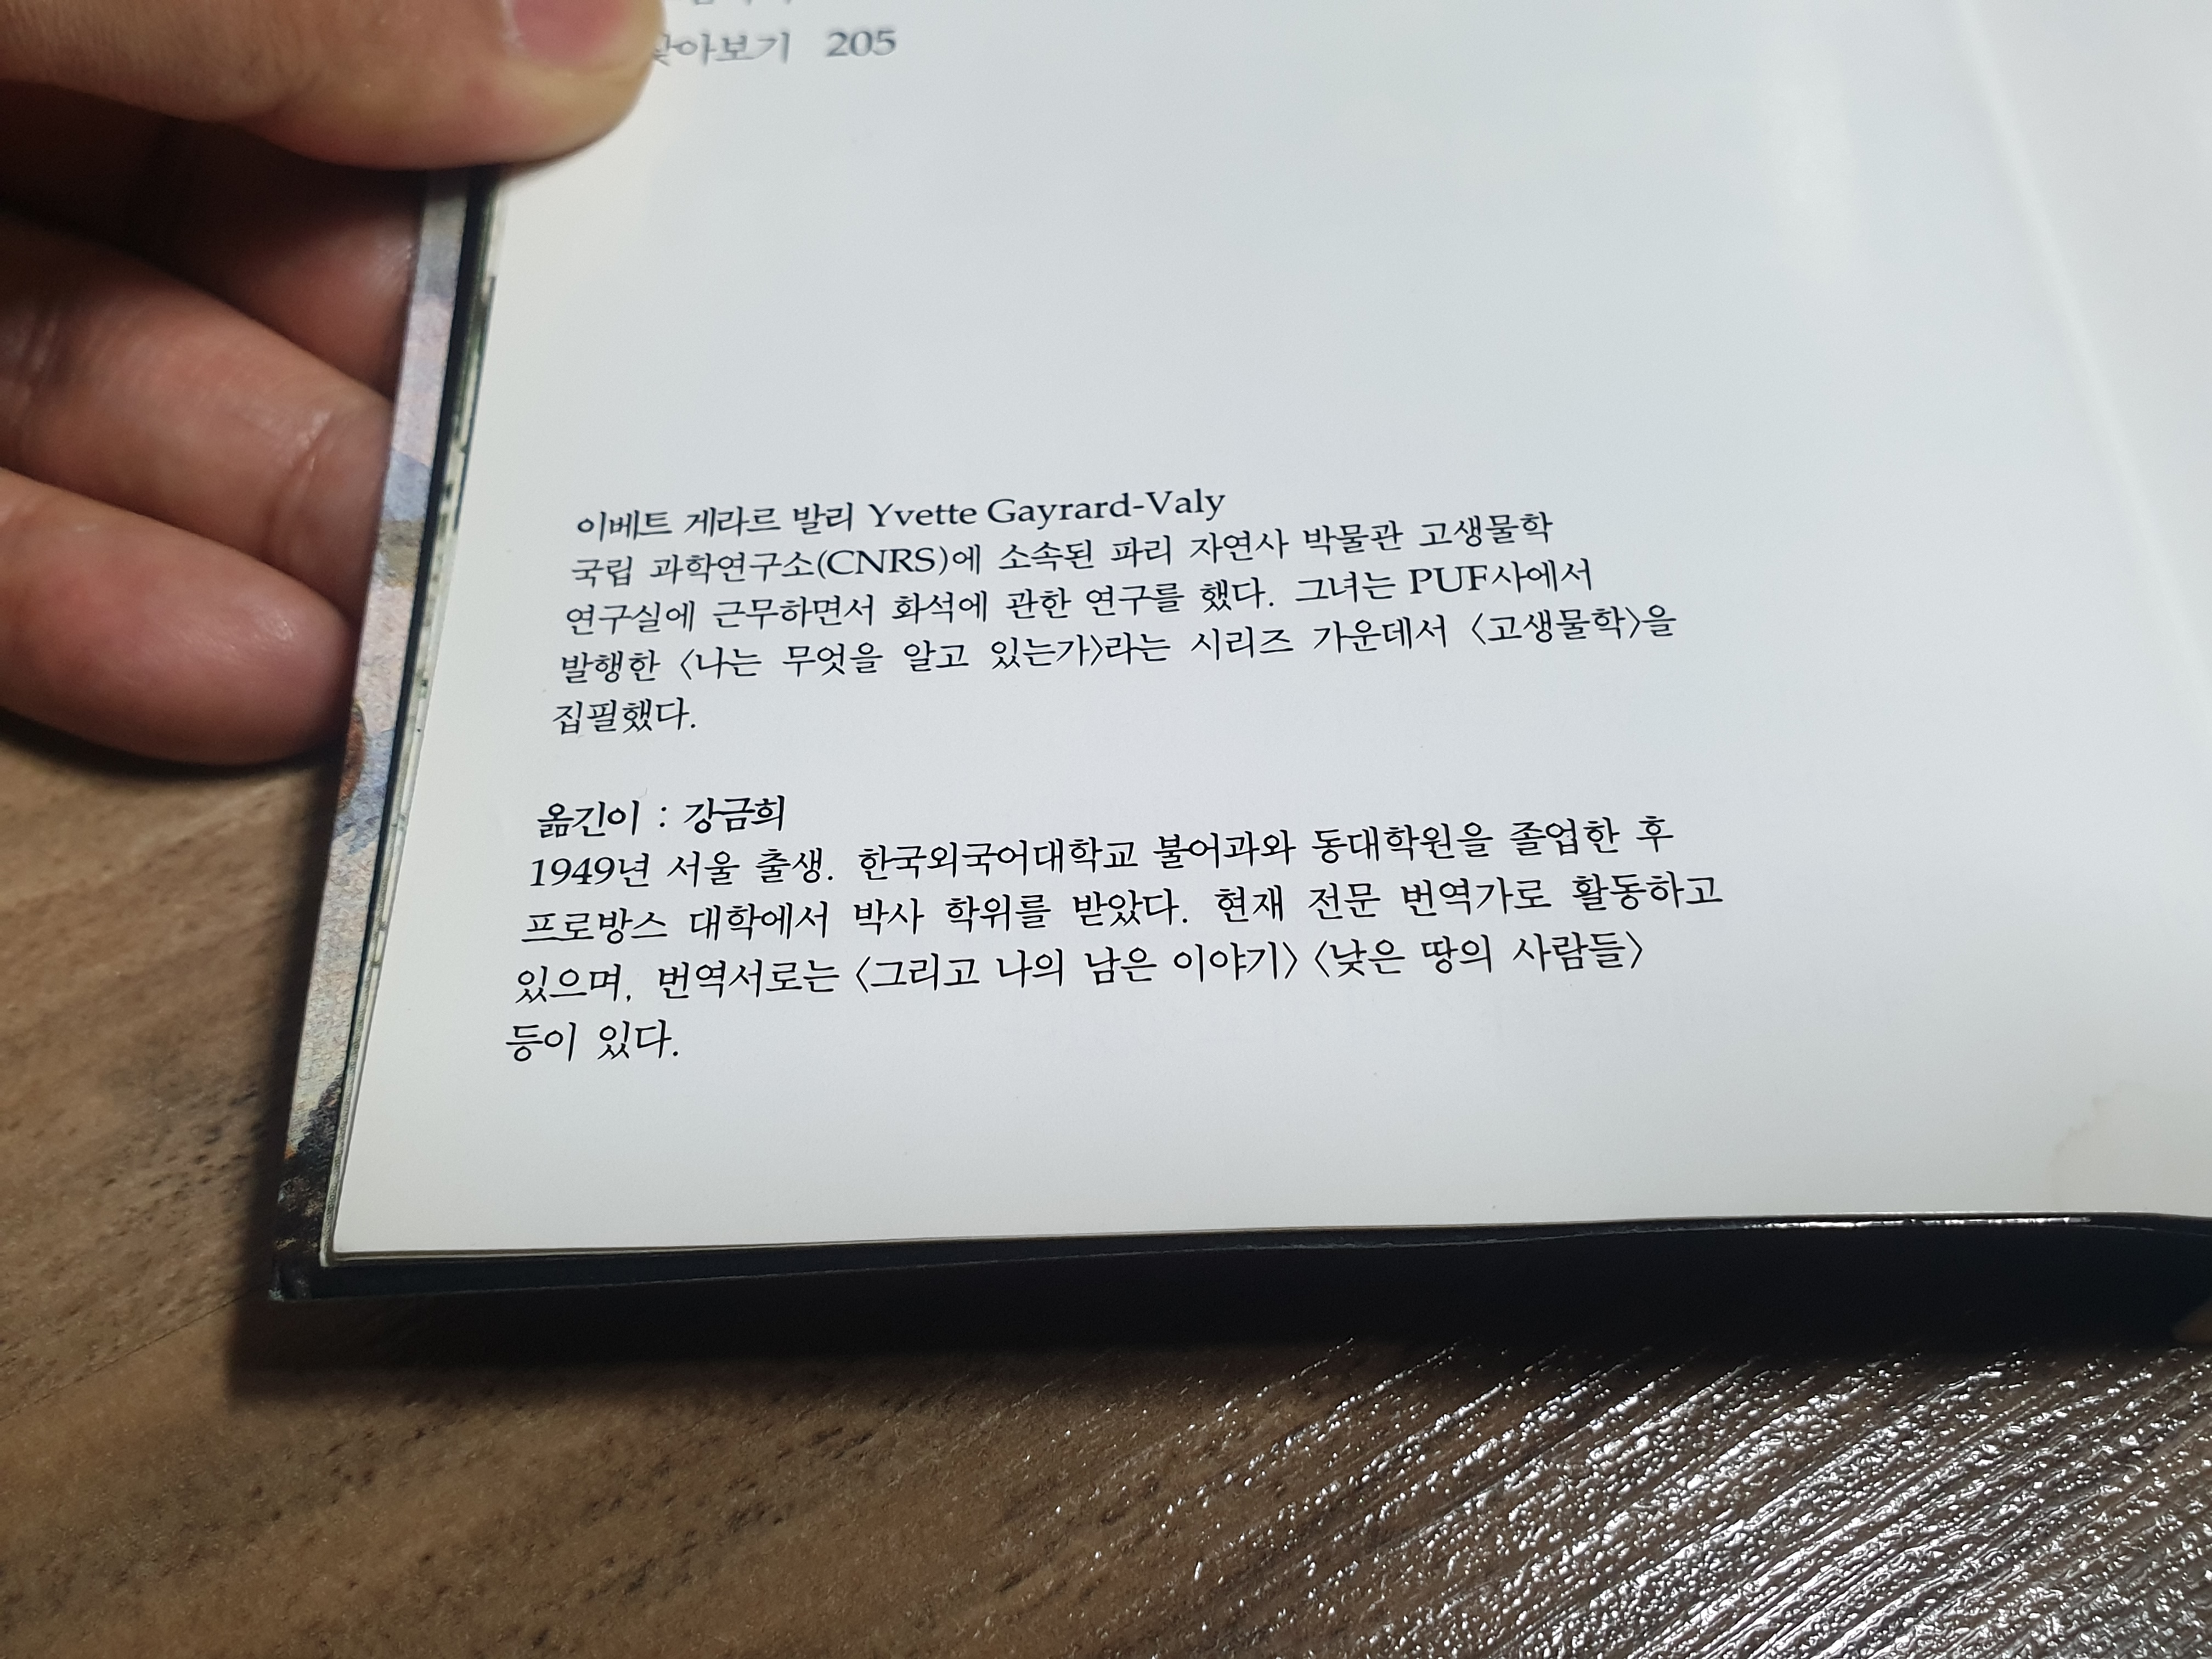 찾아보기 205
이베트 게라르 발리 Yvette Gayrard-Valy
국립 과학연구소(CNRS)에 소속된 파리 자연사 박물관 고생물학
연구실에 근무하면서 화석에 관한 연구를 했다. 그녀는 PUF사에서
발행한 〈나는 무엇을 알고 있는가〉라는 시리즈 가운데서 〈고생물학〉을
집필했다.
옮긴이 : 강금희
1949년 서울 출생. 한국외국어대학교 불어과와 동대학원을 졸업한 후
프로방스 대학에서 박사 학위를 받았다. 현재 전문 번역가로 활동하고
있으며, 번역서로는 〈그리고 나의 남은 이야기〉 〈낮은 땅의 사람들〉
등이 있다.